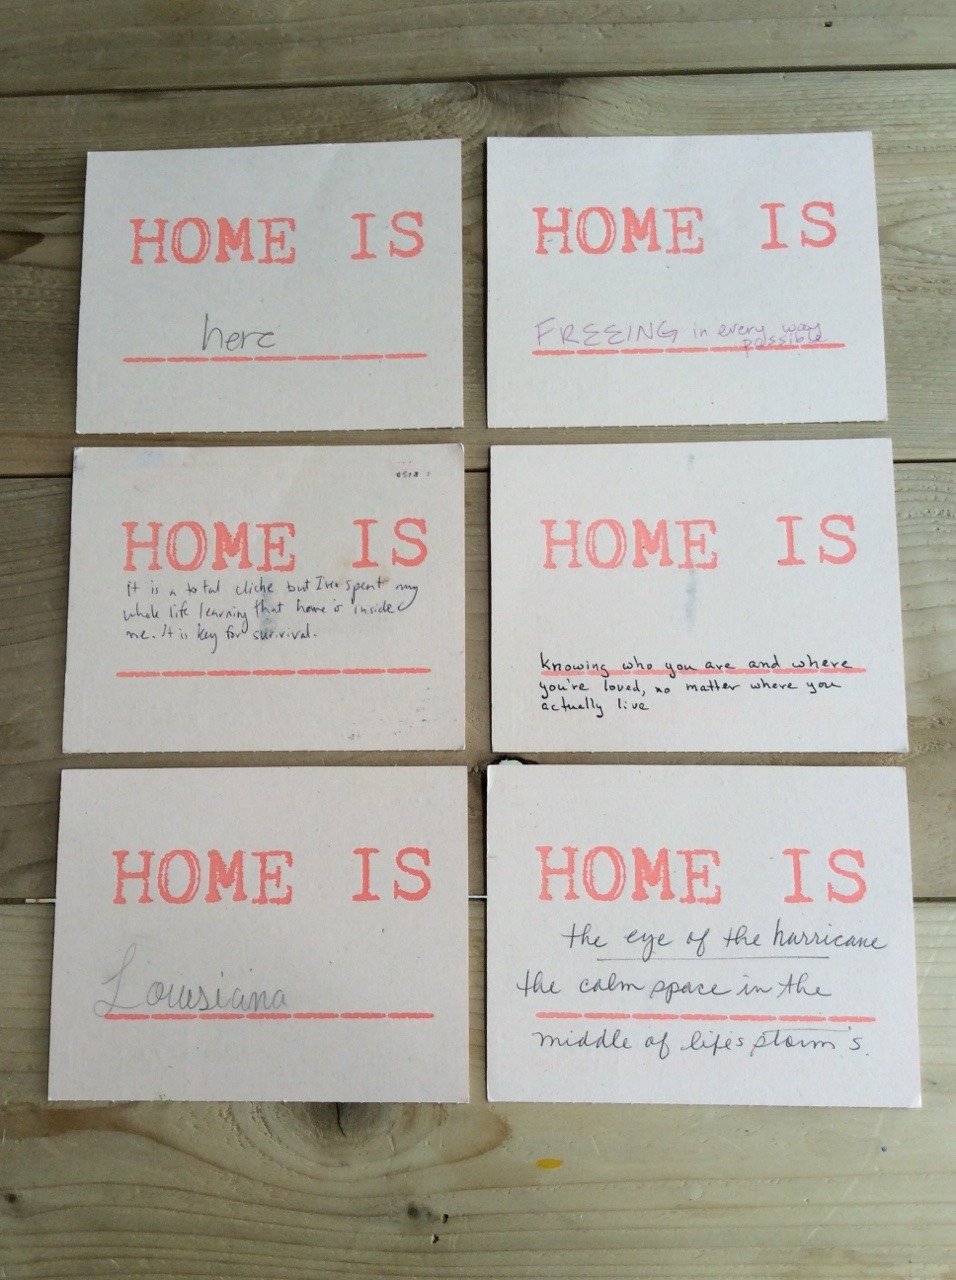 HOME IS
here
HOME IS
FREEING in every way
possible
HOME IS
It is a total cliche but I've spent my
whole life learning that home is inside
me. It is key for survival.
HOME IS
knowing who you are and where
you're loved, no matter where you
actually live
HOME IS
Louisiana
HOME IS
the eye of the hurricane
the calm space in the
middle of lifes storm's.